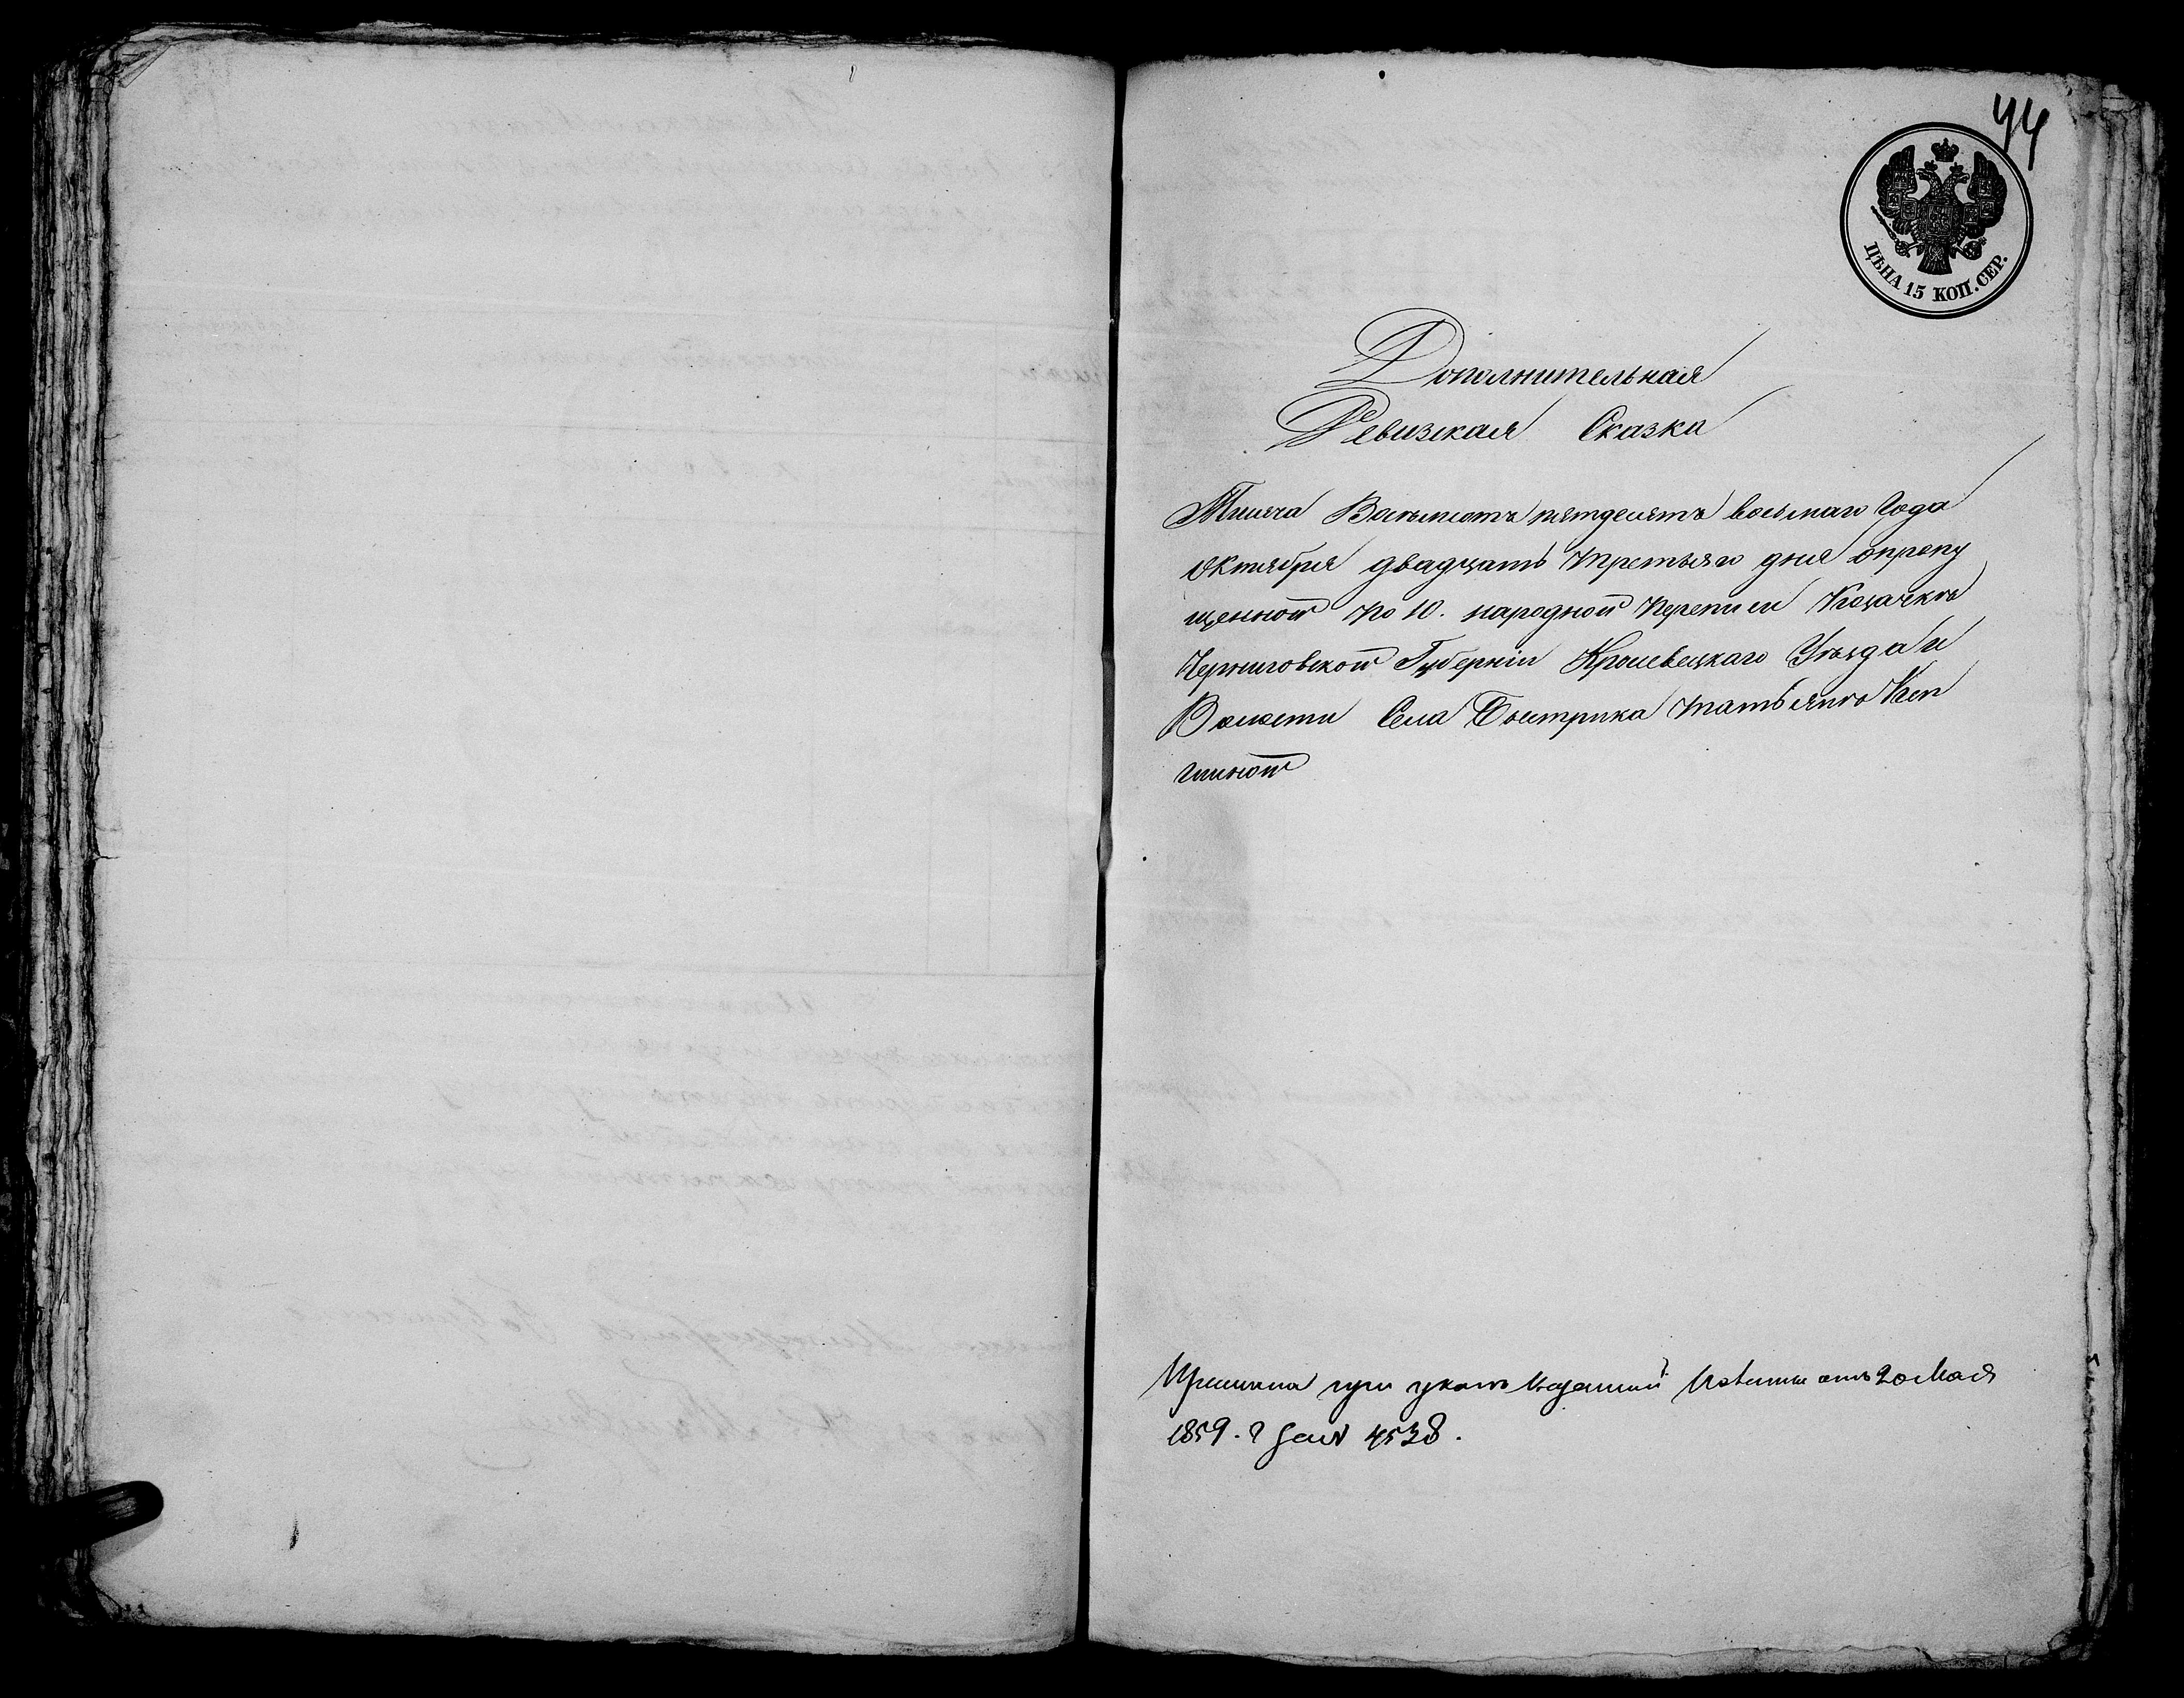 44
ЦѢНА 15 КОП. СЕР.
Дополнительная
Ревизская Сказка
Тисяча Восемьсотъ пятдесятъ восьмаго Года
Октября двадцать третьяго дня опропу
щенной по 10. народной переписи Козачкѣ
Черниговской Губерніи Кролевецкаго Уѣзда и
Волости Села Быстрика татьянѣ
при указѣ Казенной Палаты отъ 20 Мая
1859. г за № 4538.